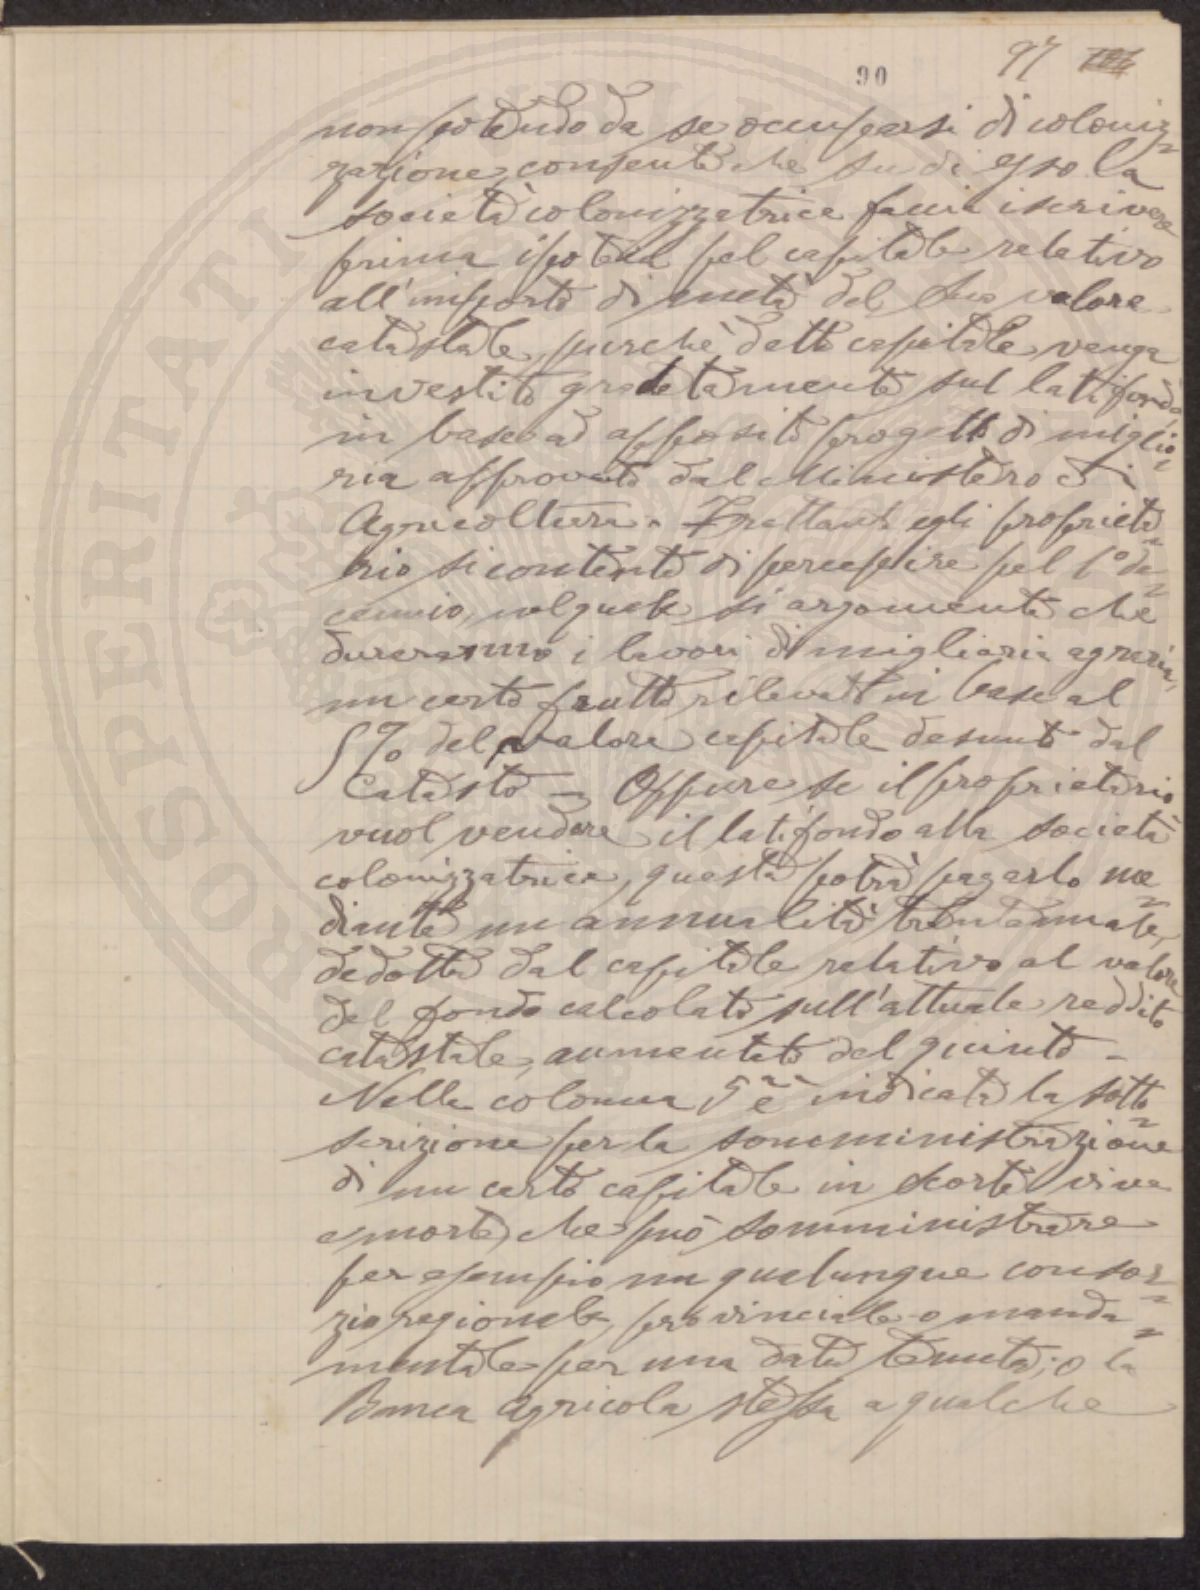 97
90
non potendo da se occuparsi di coloniz=
zazione, consente che su di esso la
società colonizzatrice faccia iscrivere
prima ipoteca pel capitale relativo
all'importo di metà del suo valore
catastale, purchè detto capitale venga
investito gradatamente sul latifondo,
in base ad apposito progetto di miglio=
ria approvato dal Ministero di
Agricoltura. Frattanto egli proprieta=
rio si contenta di percepire pel 1° de=
cennio, nel quale si argomenta che
dureranno i lavori di miglioria agraria,
un certo frutto rilevato in base al
5% del valore capitale desunto dal
Catasto — Oppure se il proprietario
vuol vendere il latifondo alla società
colonizzatrice, questa potrà pagarlo me=
diante un annualità trentennale,
dedotta dal capitale relativo al valore
del fondo calcolato sull'attuale reddito
catastale, aumentato del quinto —
Nella colonna 5ª è indicata la sotto=
scrizione per la somministrazione
di un certo capitale in scorte vive
e morte, che può somministrare
per esempio un qualunque consor=
zio regionale, provinciale o manda=
mentale per una data tenuta; o la
Banca Agricola stessa a qualche
PROSPERITATI